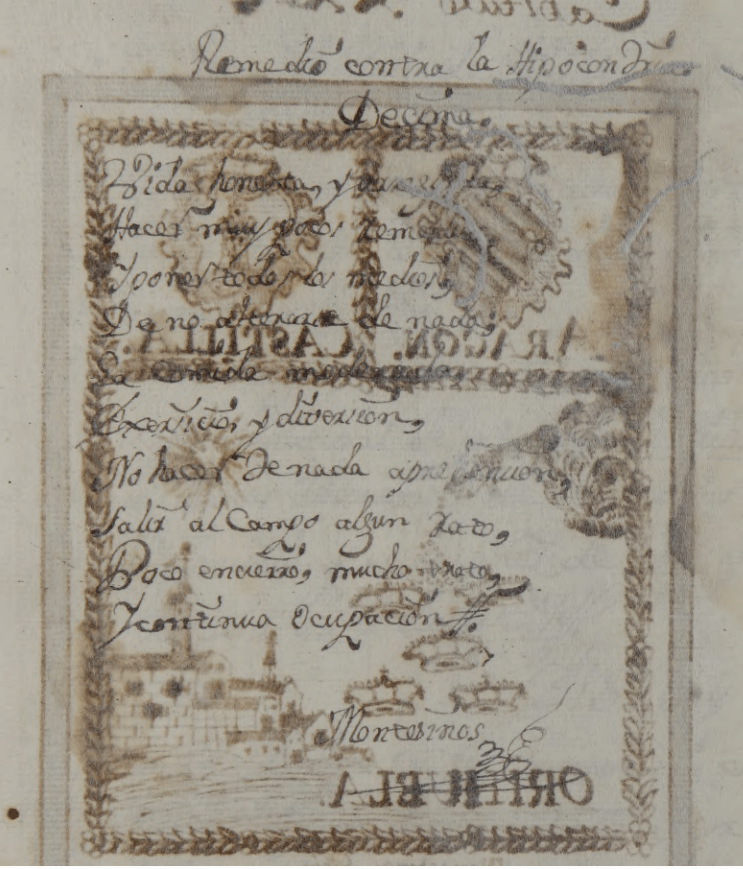 Remedio contra la Hipocondria
Decima.
Vida honesta, y arreglada,
Hacer muy pocos remedios,
Y poner todos los medios,
De no alterarse de nada;
ARAGON. CASTILLA.
La comida moderada
Exersicio, y diversion,
No hacer de nada aprehencion,
Salir al Campo algun rato,
Poco encierro, mucho trato,
Y continua Ocupación
Montesinos
ORIHUELA.